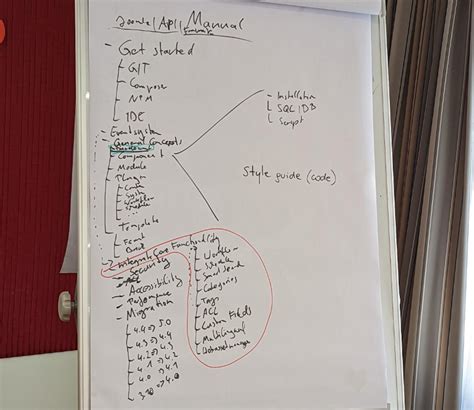 Joomla API Manual
- Get started
- GIT
- Composer
- NPM
- IDE
- Eventsystem
- General Concepts
- Component
- Module
- Plugin
- System
- Workflow
- Schedule
- Template
- Front
- Integrate Core Functionality
- Security
- ACL
- Accessibility
- Performance
- Migration
- 4.4 => 5.0
- 4.3 => 4.4
- 4.2 => 4.3
- 4.1 => 4.2
- 4.0 => 4.1
- 3.10 => 4.0
- Workflow
- Schedule
- Smart Search
- Categories
- Tags
- ACL
- Custom Fields
- Multilingual
- Installation
- SQL / DB
- Script
Style guide (code)